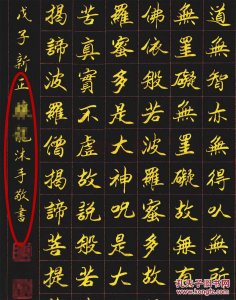 道無智亦無得以無所
無罣礙無罣礙故無有
佛依般若波羅蜜多故
羅蜜多是大神咒是大
苦真實不虛故說般若
揭諦波羅僧揭諦菩提
戊子新正龍沐手敬書